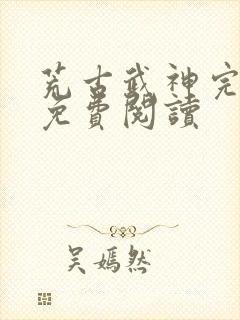 荒古武神完
免費閱讀
吳嫣然